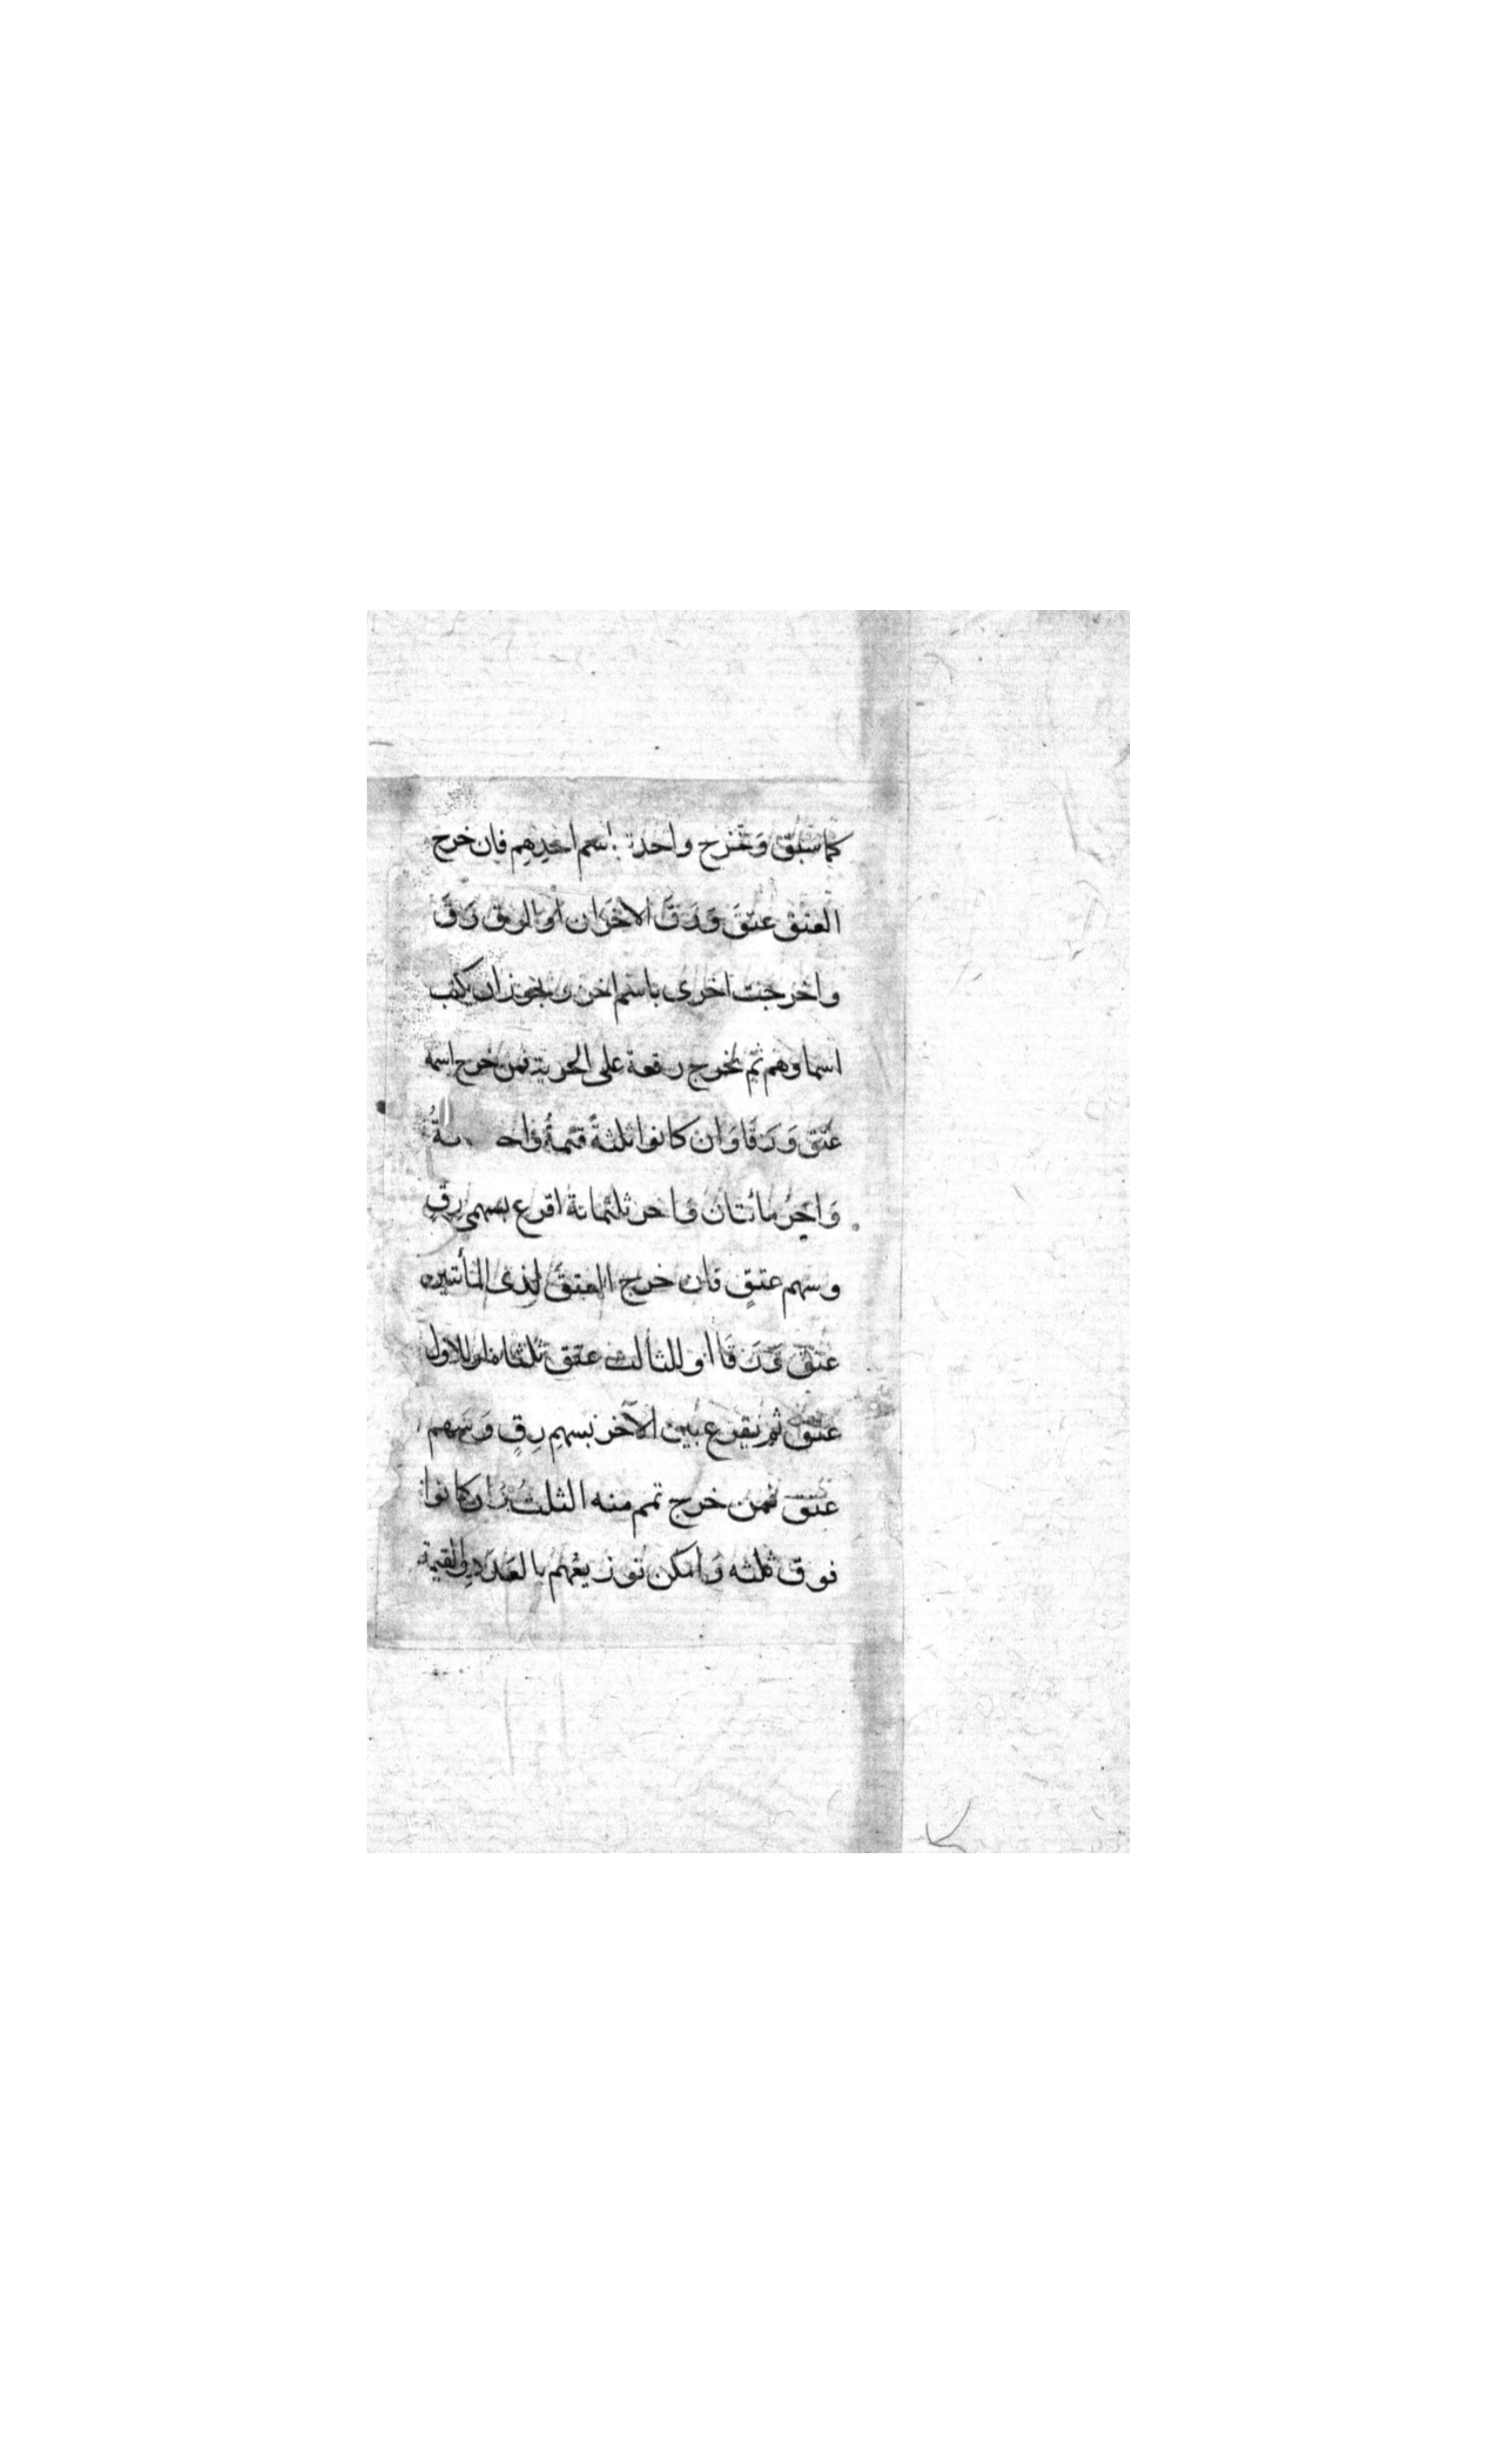 كما سبق وتخرج واحدة باسم احدهم فان خرج
العتق عتق ورق الاخران او الرق رق
واخرجت اخرى باسم اخر ويجوز ان يكتب
اسماوهم ثم تخرج رقعة على الحرية فمن خرج اسمه
عتق ورقا وان كانوا ثلثة قيمة واحد
واخر مائتان واخر ثلثمائة اقرع بسهمي رق
وسهم عتق فان خرج العتق لذي المأتين
عتق ورقا او للثالث عتق ثلثاه او للاول
عتق ثم يقرع بين الآخرين بسهم رق وسهم
عتق فمن خرج تمم منه الثلث وان كانوا
فوق ثلثه وامكن توزيعهم بالعدد والقيمة